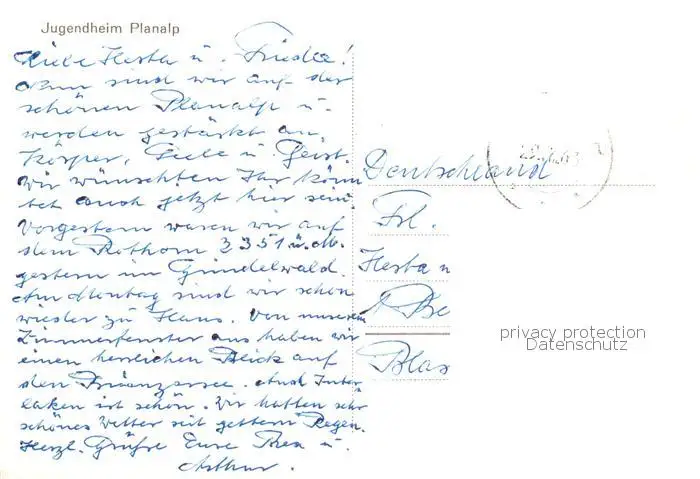 Jugendheim Planalp
Liebe Herta u. Frieda!
Nun sind wir auf der
schönen Planalp u.
werden gestärkt an
Körper, Seele u. Geist.
Wir wünschten Ihr könn
tet auch jetzt hier sein.
Vorgestern waren wir auf
dem Rothorn 2351 ü.M.
gestern im Grindelwald.
Am Montag sind wir schon
wieder zu Haus. Von unserem
Zimmerfenster aus haben wir
einen herrlichen Blick auf
den Brienzersee. Auch Inter-
laken ist schön. Wir hatten sehr
schönes Wetter seit gestern Regen.
Herzl. Grüße Eure Thea u.
Arthur.
Deutschland
Frl.
Herta u
Blas
privacy protection
Datenschutz